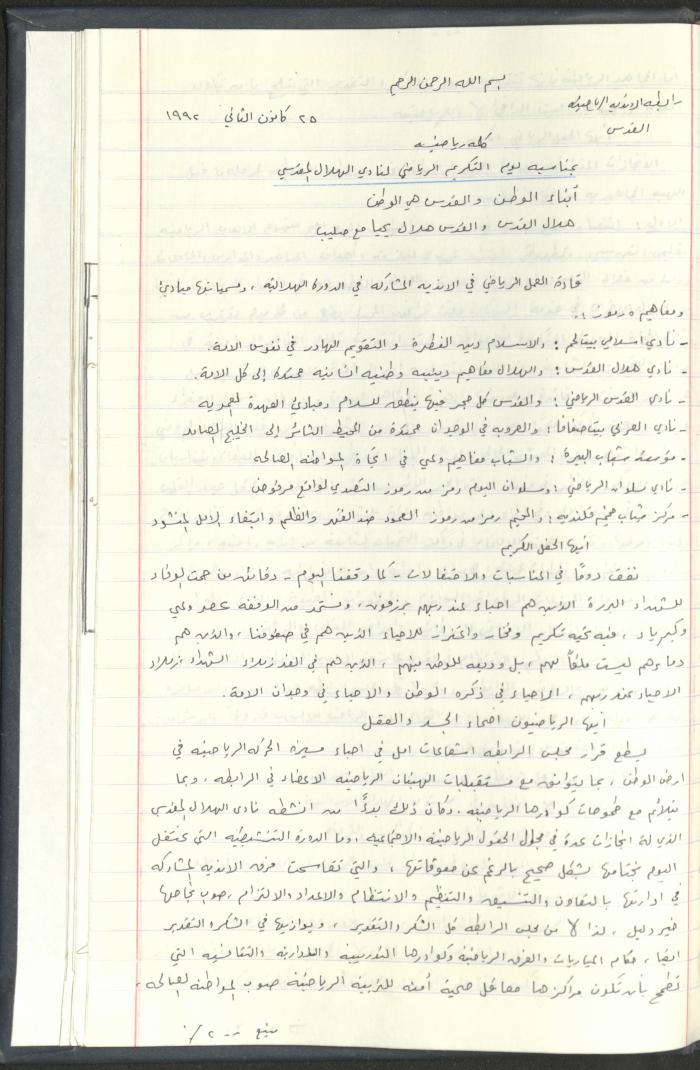 بسم الله الرحمن الرحيم
رابطة الاندية الرياضية
القدس
٢٥ كانون الثاني ١٩٩٢
كلمة رياضية
بمناسبة يوم التكريم الرياضي لنادي الهلال المقدسي
أبناء الوطن والقدس هي الوطن
هلال القدس والقدس هلال يحيا مع صليب
قادة العمل الرياضي في الاندية المشاركة في الدورة الهلالية، ومسمياتها مبادئ
ومفاهيم ورموز :.
- نادي اسلامي بيتالحم : والاسلام دين الفطرة والتقويم الهادر في نفوس الامة.
- نادي هلال القدس : والهلال مفاهيم دينية وطنية انسانية ممتدة إلى كل الامة.
- نادي القدس الرياضي : والقدس كل حجر فيها ينطق للسلام ومبادئ العهدة العمرية
- نادي العربي بيت صفافا : والعروبة في الوجدان ممتدة من المحيط الثائر إلى الخليج الصامد
- مؤسسة شباب البيرة : والشباب مفاهيم وعي في اتجاه المواطنة الصالحة
- نادي سلوان الرياضي : وسلوان اليوم رمز من رموز التصدي لواقع مرفوض
- مركز شباب مخيم قلنديه : والمخيم رمز من رموز الصمود ضد القهر والظلم وابتغاء الامل المنشود
أيها الحفل الكريم
نقف دومًا في المناسبات والاحتفالات - كما وقفنا اليوم - دقائق من صمت الوفاء
للشهداء البررة الذين هم احياء عند ربهم يرزقون، ونستمد من الوقفة عصر وعي
وكبرياء، فيه تحية تكريم وفخار واعتزاز للاحياء الذين هم في صفوفنا، والذين هم
دماؤهم ليست ملكاً لهم، بل وديعة للوطن فيهم، الذين هم في الغد زملاء الشهداء، زملاء
الاحياء عند ربهم، الاحياء في ذكره الوطن والاحياء في وجدان الامة.
أيها الرياضيون اصحاء الجسد والعقل
يسطع قرار مجلس الرابطة اشعاعات امل في احياء مسيرة الحركة الرياضية في
ارض الوطن، بما يتوافق مع مستقبليات الهيئات الرياضية الاعضاء في الرابطة، وبما
يتلائم مع طموحات كوادرها الرياضية. وكان ذلك بدءًا من انشطة نادي الهلال المقدسي
الذي له انجازات عدة في مجمل الحقول الرياضية والاجتماعية، وما الدورة التنشيطية التي نحتفل
اليوم بختامها بشكل صحيح بالرغم عن معوقاتها، والتي تقاسمت فرق الاندية المشاركة
في ادارتها بالتعاون والتنسيق والتنظيم والانتظام والاعداد والالتزام، صوب نجاحها
خير دليل، لذا لا من مجلس الرابطة كل الشكر والتقدير، ويوازيها في الشكر والتقدير
ايضا، حكام المباريات والفرق الرياضية وكوادرها التدريبية والادارية والتنافسية التي
تطمح بأن تكون مراكزها معاقل صحية آمنة للتربية الرياضية صوب المواطنة الصالحة،
يتبع -- ٢/.